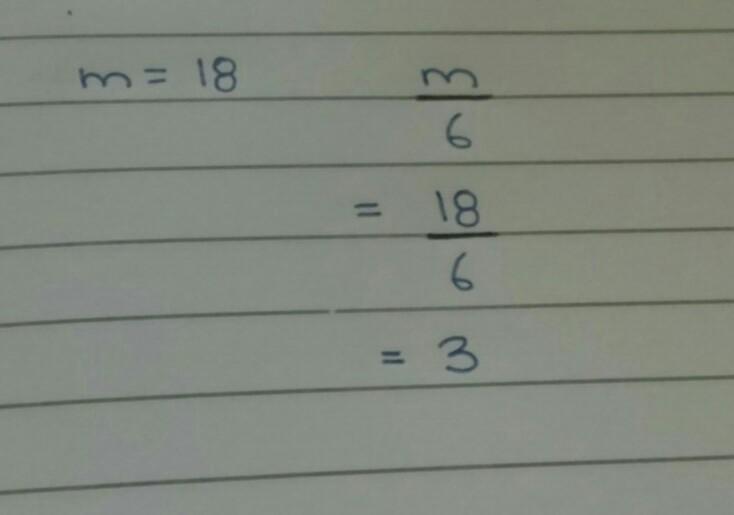 m = 18
m
6
= 18
6
= 3